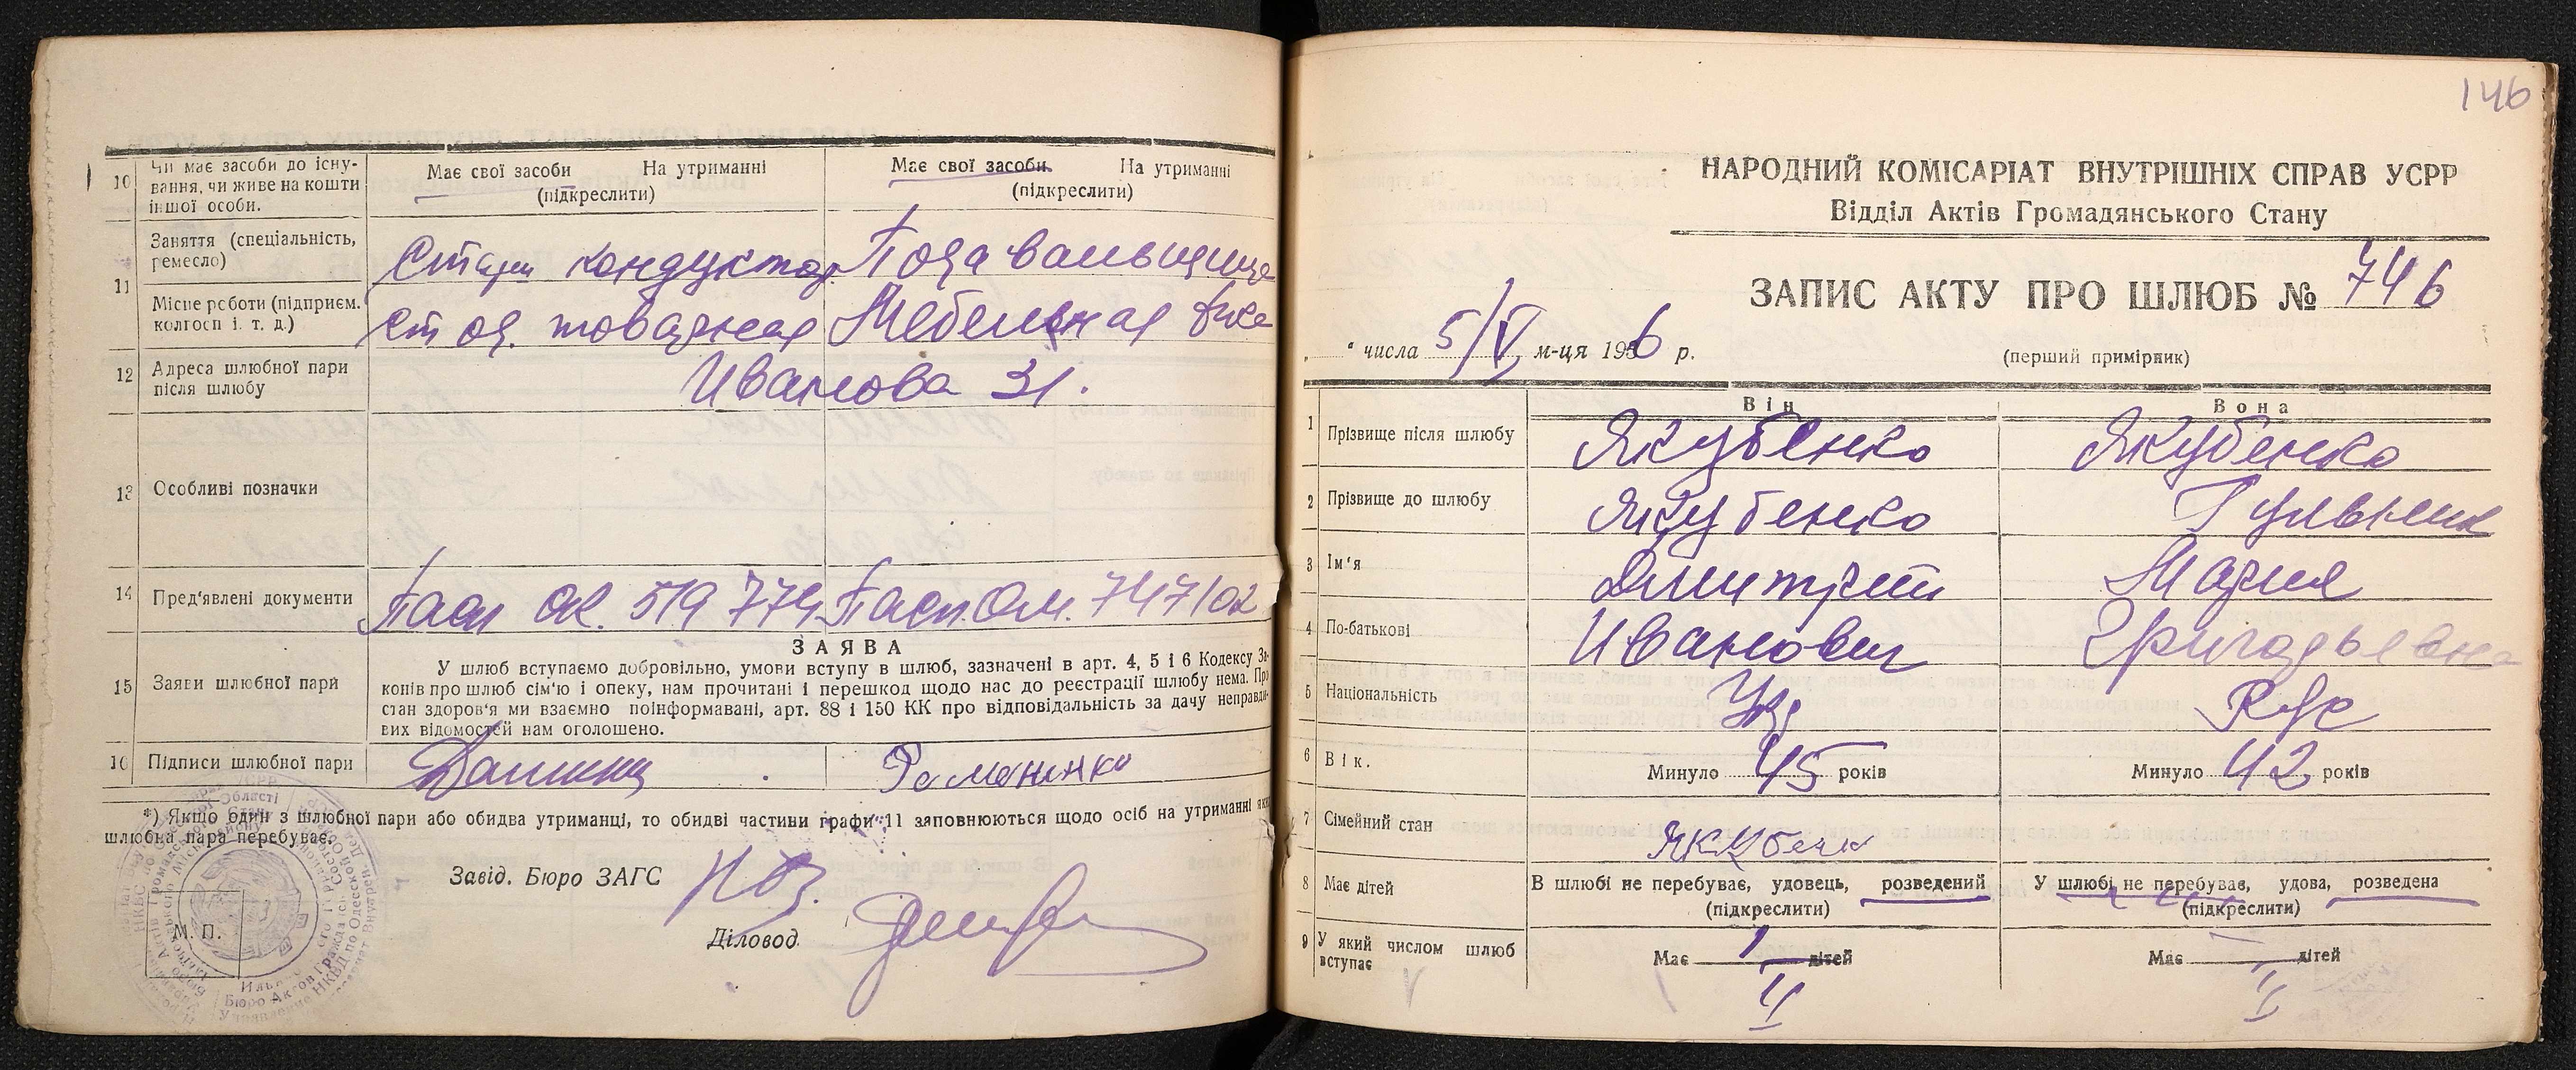 10 Чи має засоби до існу-
вання, чи живе на кошти
іншої особи.
Має свої засоби На утриманні
(підкреслити)
Має свої засоби На утриманні
(підкреслити)
11 Заняття (спеціальність,
ремесло)
кондуктор
Подавальщица
Місце роботи (підприєм.
колгосп і. т. д.)
ст од. товарная
Мебельная
12 Адреса шлюбної пари
після шлюбу
Иванова 31.
13 Особливі позначки
14 Пред'явлені документи
Пасп ОК. 519 774
Пасп. Ом. 747102
15 Заяви шлюбної пари
ЗАЯВА
У шлюб вступаємо добровільно, умови вступу в шлюб, зазначені в арт. 4, 5 і 6 Кодексу За-
конів про шлюб сім'ю і опеку, нам прочитані і перешкод щодо нас до реєстрації шлюбу нема. Про
стан здоров'я ми взаємно поінформавані, арт. 88 і 150 КК про відповідальність за дачу неправди-
вих відомостей нам оголошено.
16 Підписи шлюбної пари
*) Якщо один з шлюбної пари або обидва утриманці, то обидві частини графи 11 заповнюються щодо осіб на утриманні яких
шлюбна пара перебуває.
Завід. Бюро ЗАГС
Діловод.
М. П.
146
НАРОДНИЙ КОМІСАРІАТ ВНУТРІШНІХ СПРАВ УСРР
Відділ Актів Громадянського Стану
ЗАПИС АКТУ ПРО ШЛЮБ № 746
„ “ числа 5/V м-ця 1936 р.
(перший примірник)
Він Вона
1 Прізвище після шлюбу Якубенко Якубенко
2 Прізвище до шлюбу Якубенко
3 Ім'я Дмитрий Мария
4 По-батькові Иванович Григорьевна
5 Національність Укр Рус
6 Вік. Минуло 45 років Минуло 42 років
7 Сімейний стан
Якубенк
8 Має дітей
В шлюбі не перебуває, удовець, розведений
(підкреслити)
У шлюбі не перебуває, удова, розведена
(підкреслити)
9 У який числом шлюб
вступає
Має 1 дітей
Має — дітей
II
II